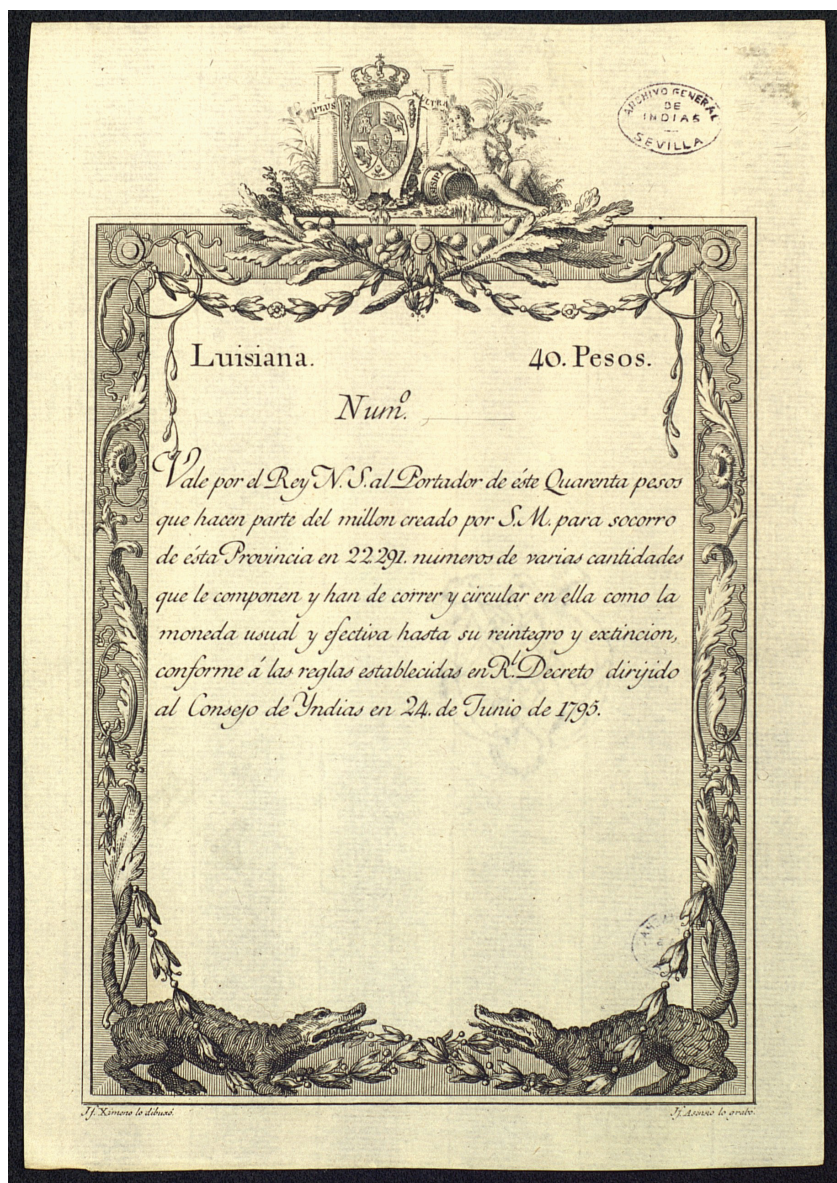 PLUS ULTRA
ARCHIVO GENERAL
DE
INDIAS
SEVILLA
Luisiana. 40. Pesos.
Numº.
Vale por el Rey N. S. al Portador de éste Quarenta pesos
que hacen parte del millon creado por S. M. para socorro
de ésta Provincia en 22.291. numeros de varias cantidades
que le componen y han de correr y circular en ella como la
moneda usual y efectiva hasta su reintegro y extincion,
conforme á las reglas establecidas en Rl. Decreto dirijido
al Consejo de Yndias en 24. de Junio de 1795.
Jf. Ximeno lo dibuxó. Jf. Asensio lo grabó.